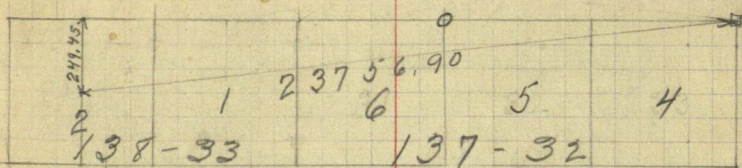 249.45
23756.90
2 1 6 5 4
138-33 137-32